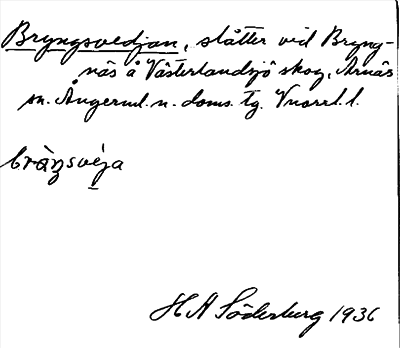 Bryngsvedjan, slåtter vid Bryng-
näs å Västerlandsjö skog, Arnäs
sn. Ångerml. n. doms. tg. Vnorrl. l.
H A Söderburg 1936